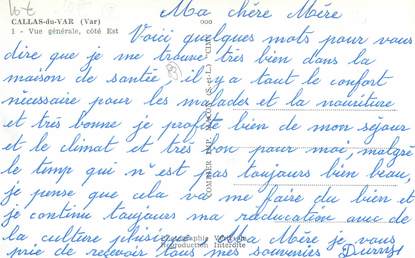 16 t
CALLAS-du-VAR (Var)
1 - Vue générale, côté Est
Ma chère Mère
Voici quelques mots pour vous
dire que je me trouve très bien dans la
maison de santée il y a tout le confort
nécessaire pour les malades et la nourriture
et très bonne je profite bien de mon séjour
et le climat et très bon pour moi, malgré
le temp qui n'est pas toujours bien beau,
je pense que cela va me faire du bien et
je continu toujours ma réeducation avec de
la culture phisique, Ma Mère je vous
prie de recevoir tous mes souvenirs
COMBIER IMP. MACON (S.-et-L.)
Reproduction Interdite